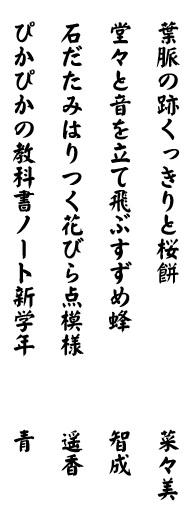 葉脈の跡くっきりと桜餅 菜々美
堂々と音を立て飛ぶすずめ蜂 智成
石だたみはりつく花びら点模様 遥香
ぴかぴかの教科書ノート新学年 青